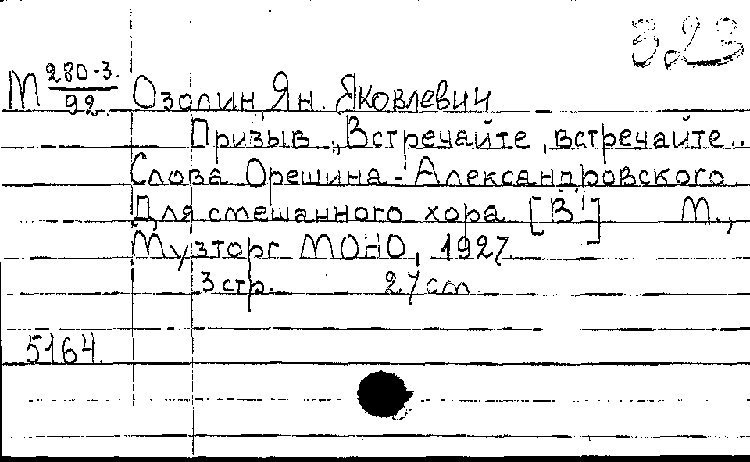 323
М 280-3. Озолин Ян. Яковлевич
92.
Призыв „Встречайте, встречайте..
Слова Орешина-Александровского
Для смешанного хора [В'] М.,
Музторг МОНО, 1927.
3 стр. 27 cm
5164.